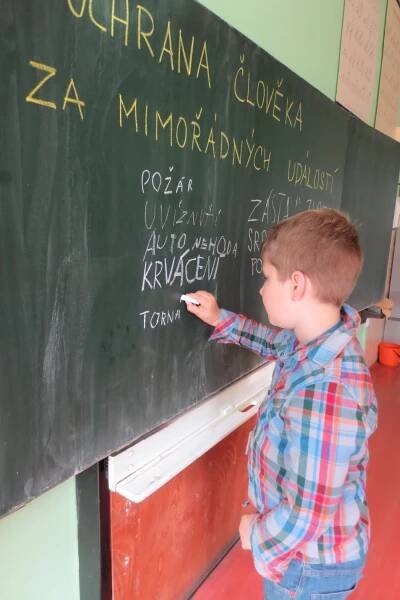 OCHRANA ČLOVĚKA
ZA MIMOŘÁDNÝCH UDÁLOSTÍ
POŽÁR
UVÍZNUTÍ
AUTONEHODA
KRVÁCENÍ
TORNA